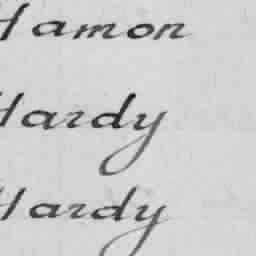 Hamon
Hardy
Hardy